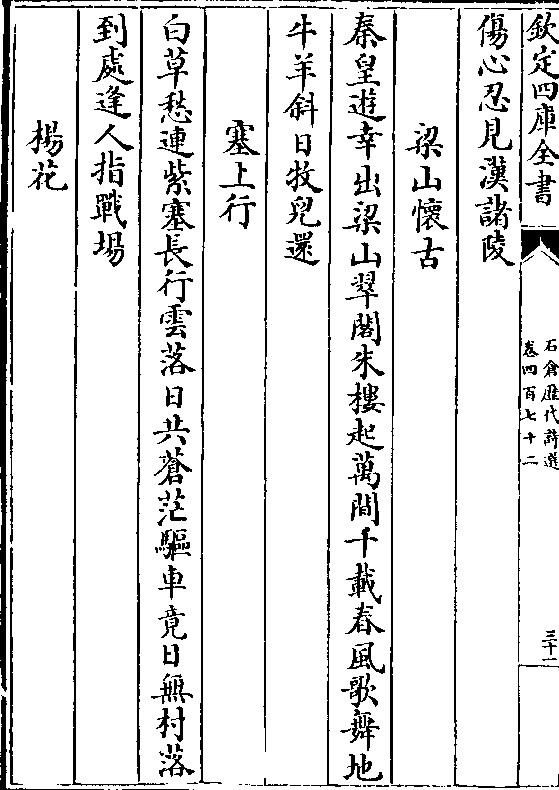 欽定四庫全書
石倉歷代詩選
卷四百七十二
三十一
傷心忍見漢諸陵
梁山懷古
秦皇遊幸出梁山翠閣朱樓起萬間千載春風歌舞地
牛羊斜日牧兒還
塞上行
白草愁連紫塞長行雲落日共蒼茫驅車竟日無村落
到處逢人指戰場
楊花